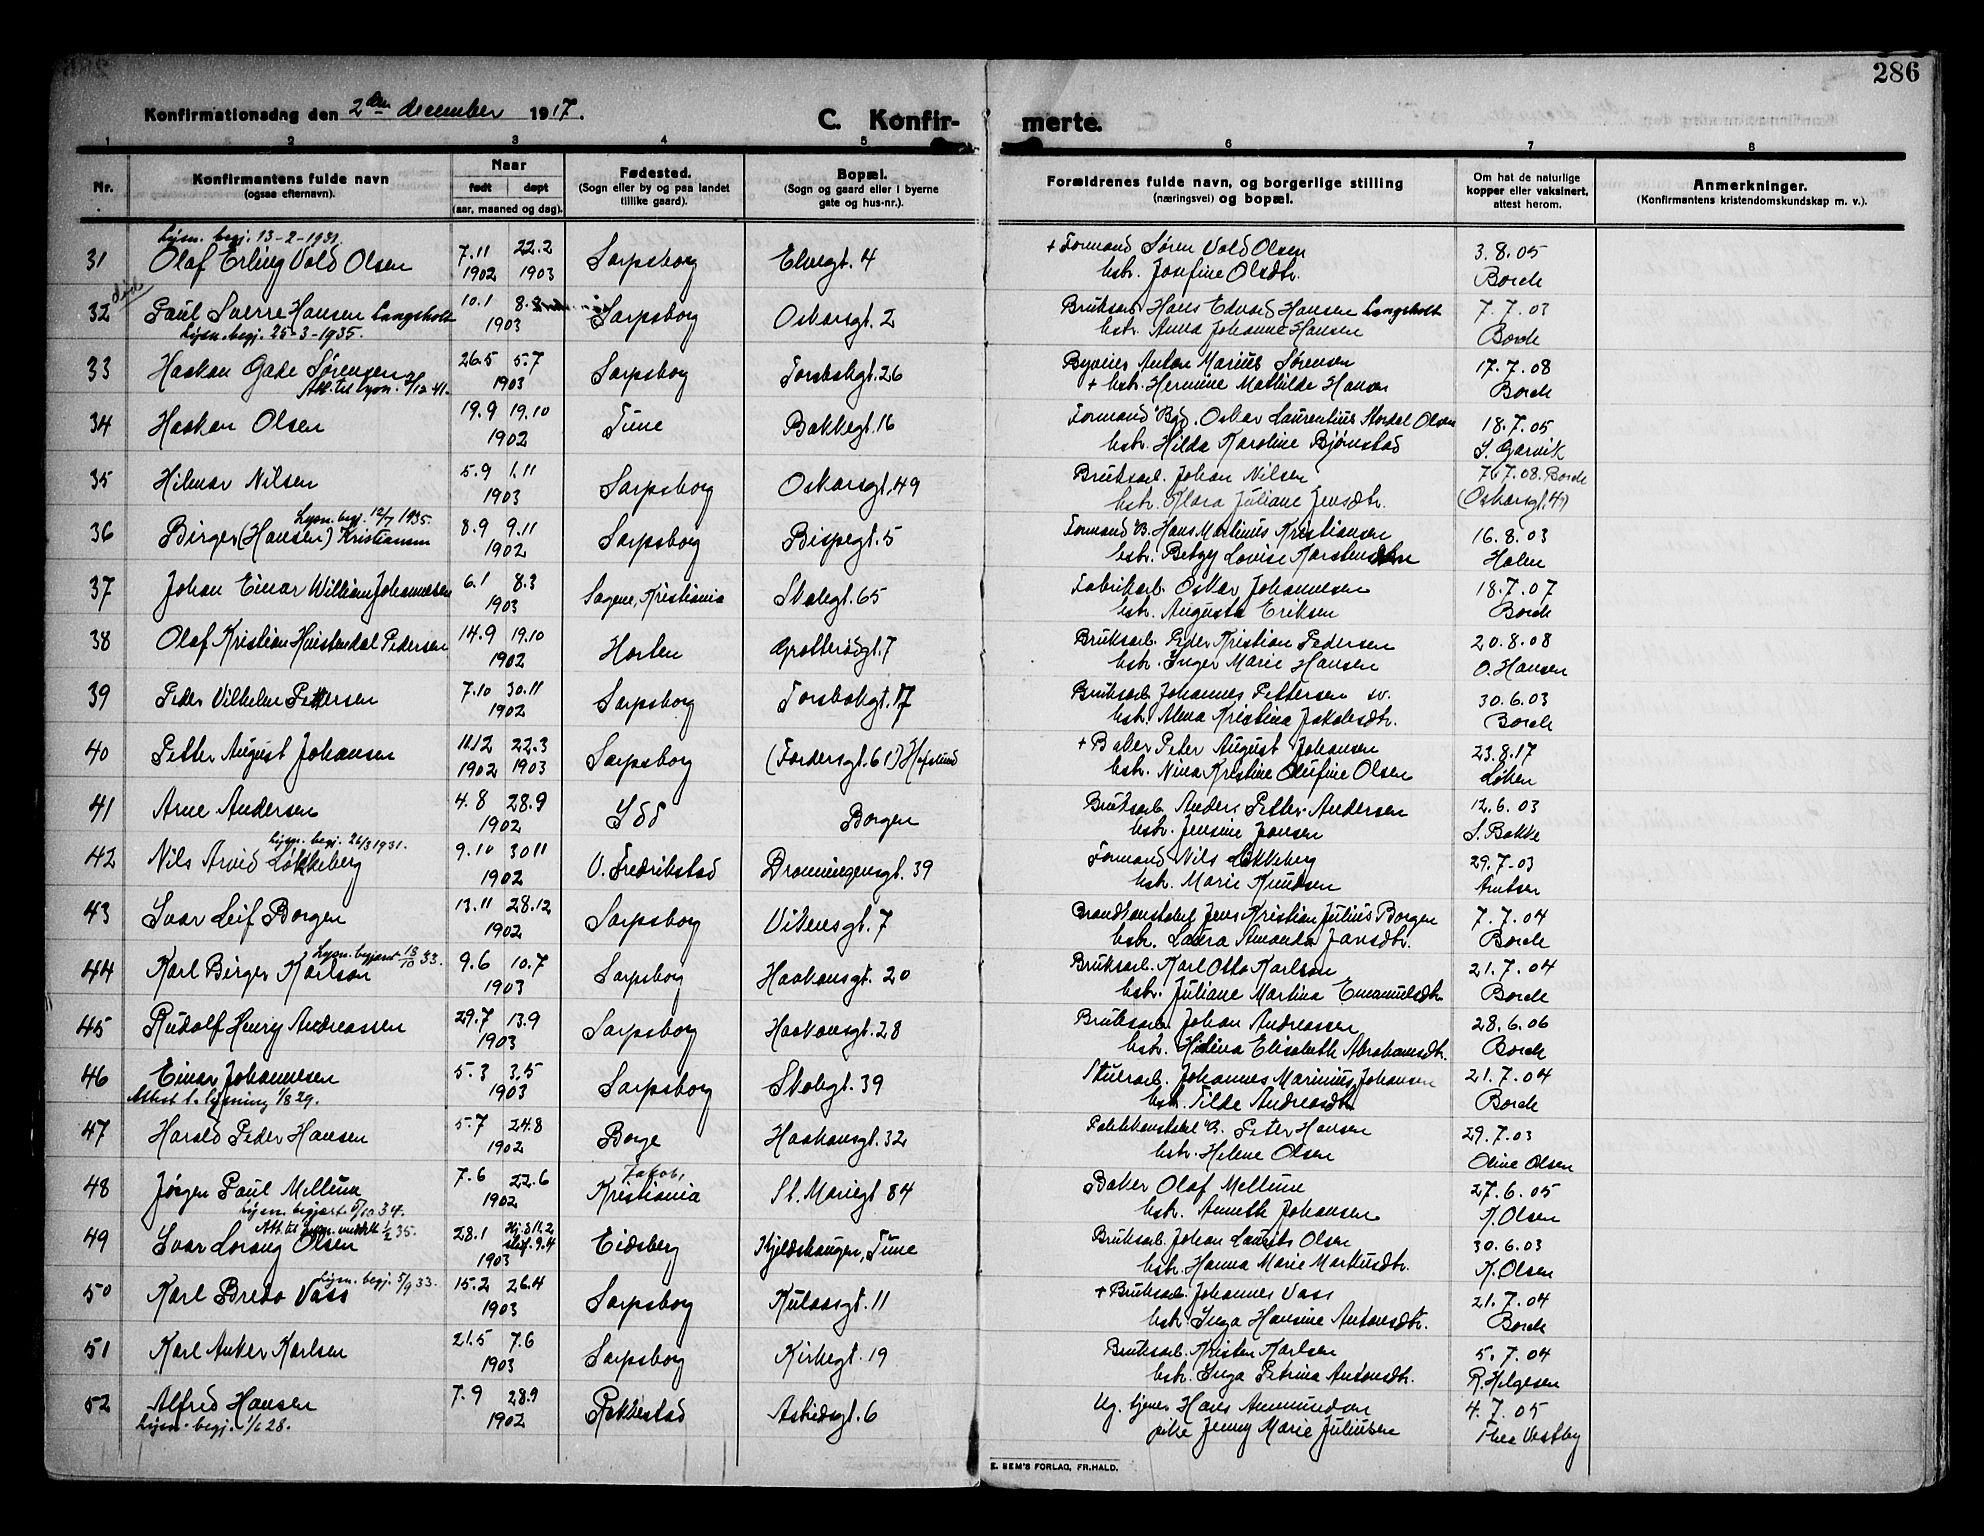 286
Konfirmationsdag den 2den december 1917.
C. Konfir- merte.
1 2 3 4 5 6 7 8
Nr. Konfirmantens fulde navn (ogsaa efternavn). Naar født døpt (aar, maaned og dag). Fødested. (Sogn eller by og paa landet tillike gaard). Bopæl. (Sogn og gaard eller i byerne gate og hus-nr.). Forældrenes fulde navn, og borgerlige stilling (næringsvei) og bopæl. Om hat de naturlige kopper eller vaksinert, attest herom. Anmerkninger. (Konfirmantens kristendomskundskap m. v.).
Lysn. begj. 13-2-1931.
31 Olaf Erling Vold Olsen 7.11 1902 22.2 1903 Sarpsborg Elvegt. 4 + Formand Søren Vold Olsen 3.8.05
hstr. Josefine Olsdtr. Borch
død
32 Paul Sverre Hansen Langsholt 10.1 8.3 1903 Sarpsborg Oskarsgt. 2 Bruksarb. Hans Edvard Hansen Langsholt 7.7.03
Lysn. begj. 25-3-1935. hstr. Anna Johanne Hansen Borch
33 Haakon Gade Sørensen 26.5 5.7 1903 Sarpsborg Torsbekgt. 26 Byveier Anton Marius Sørensen 17.7.08
Att. til lysn. /12 41. + hstr. Hermine Mathilde Hansen Borch
34 Haakon Olsen 19.9 19.10 1902 Tune Bakkegt. 16 Formand Bgd. Oskar Laurentius Stordal Olsen 18.7.05
hstr. Hilda Karoline Bjørnstad S. Garvik
35 Hilmar Nilsen 5.9 1.11 1903 Sarpsborg Oskarsgt. 49 Bruksarb. Johan Nilsen 7.08. Borch
hstr. Klara Juliane Jensdtr. (Oskarsgt. 49)
Lysn. begj. 12/7 1935.
36 Birger (Hansen) Kristiansen 8.9 9.11 1902 Sarpsborg Bispegt. 5 Formand B. Hans Martinus Kristiansen 16.8.03
hstr. Betzy Lovise Karstensdtr Holm
37 Johan Einar William Johannesen 6.1 8.3 1903 Sagene, Kristiania Skolegt. 65 Fabrikarb. Oskar Johannesen 18.7.07
hstr. Augusta Eriksen Borch
38 Olaf Kristian Haistendal Pedersen 14.9 19.10 1902 Horten Grotterødgt. 7 Bruksarb. Peder Kristian Pedersen 20.8.08
hstr. Inger Marie Hansen O. Hansen
39 Peder Vilhelm Pettersen 7.10 30.11 1902 Sarpsborg Torsbekgt. 17 Bruksarb. Johannes Pettersen sv. 30.6.03
hstr. Alma Kristina Jakobsdtr. Borch
40 Petter August Johansen 11.12 1902 22.3 1903 Sarpsborg (Fordersgt. 61) Hafslund + Baker Peter August Johansen 23.8.17
hstr. Nina Kristine Olufine Olsen Løken
41 Arne Andersen 4.8 28.9 1902 Idd Borgen Bruksarb. Anders Petter Andersen 12.6.03
hstr. Jensine Jansen S. Bakke
Lysn. begj. 26/3 1931.
42 Nils Arvid Løkkeberg 9.10 30.11 1902 V. Fredrikstad Dronningensgt. 39 Formand Nils Løkkeberg 29.7.03
hstr. Marie Knudsen Arntsen
43 Ivar Leif Borgen 13.11 28.12 1902 Sarpsborg Vikensgt. 7 Brandkonstabel Jens Kristian Julius Borgen 7.7.04
hstr. Laura Amanda Jansdtr. Borch
Lysn. begjært 13/10 33.
44 Karl Birger Karlson 9.6 10.7 1903 Sarpsborg Haakonsgt. 20 Bruksarb. Karl Otto Karlson 21.7.04
hstr. Juliane Martina Emanuelsdtr. Borch
45 Rudolf Henry Andreassen 29.7 13.9 1903 Sarpsborg Haakonsgt. 28 Bruksarb. Johan Andreassen 28.6.06
hstr. Helina Elisabeth Abrahamsdtr. Borch
46 Einar Johannesen 5.3 3.5 1903 Sarpsborg Skolegt. 39 Stuerarb. Johannes Marinius Johansen 21.7.04
Attest t. lysning 1/8 29. hstr. Tilde Andreasdtr Borch
47 Harald Peder Hansen 5.7 24.8 1902 Borge Haakonsgt. 32 Politikonstabel B. Peter Hansen 29.7.03
hstr. Helene Olsen Oline Olsen
48 Jørgen Paul Mellum 7.6 22.6 1902 Jakob, Kristiania St. Mariegt 84 Baker Olaf Mellum 27.6.05
Lysn. begjært /10 34. hstr. Anneth Johansen K. Olsen
Att. til lysn. meddelt 1/2 35.
49 Ivar Lorang Olsen 28.1 Hj.d. 11.2 stadf. 9.4 1903 Eidsberg Kjeldshaugen, Tune Bruksarb. Johan Laurits Olsen 30.6.03
hstr. Hanna Marie Markusdtr. K. Olsen
Lysn. begj. 5/9 33.
50 Karl Bredo Vass 15.2 26.4 1903 Sarpsborg Kulaasgt. 11 + Bruksarb. Johannes Vass 21.7.04
hstr. Inga Hansine Antonsdtr. Borch
51 Karl Anker Karlsen 21.5 7.6 1903 Sarpsborg Kirkegt. 19 Bruksarb. Kristen Karlsen 5.7.04
hstr. Inga Petrina Antonsdtr. R. Helgesen
52 Alfred Hansen 7.9 28.9 1902 Rakkestad Astridsgt. 6 Ug. tjener Hans Ammundsen 4.7.05
Lysn. begj. 1/6 28. pike Jenny Marie Juliussen Thea Vestby
E. SEM'S FORLAG, FR.HALD.